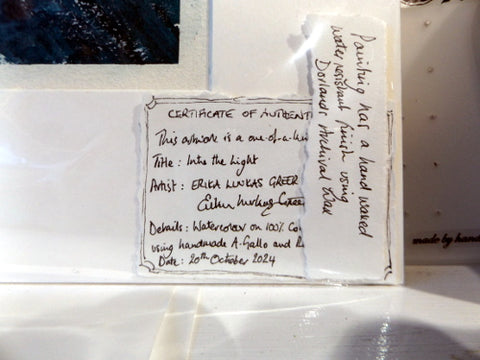 CERTIFICATE OF AUTHENTI
This artwork is a one-of-a-kin
Title : Into the Light
Artist : ERIKA LUNKAS GREER
Details : Watercolour on 100% Co
using handmade A. Gallo and R
Date : 20th October 2024
Painting has a hand waxed
water resistant finish using
Dorlands Archival Wax
made by hand